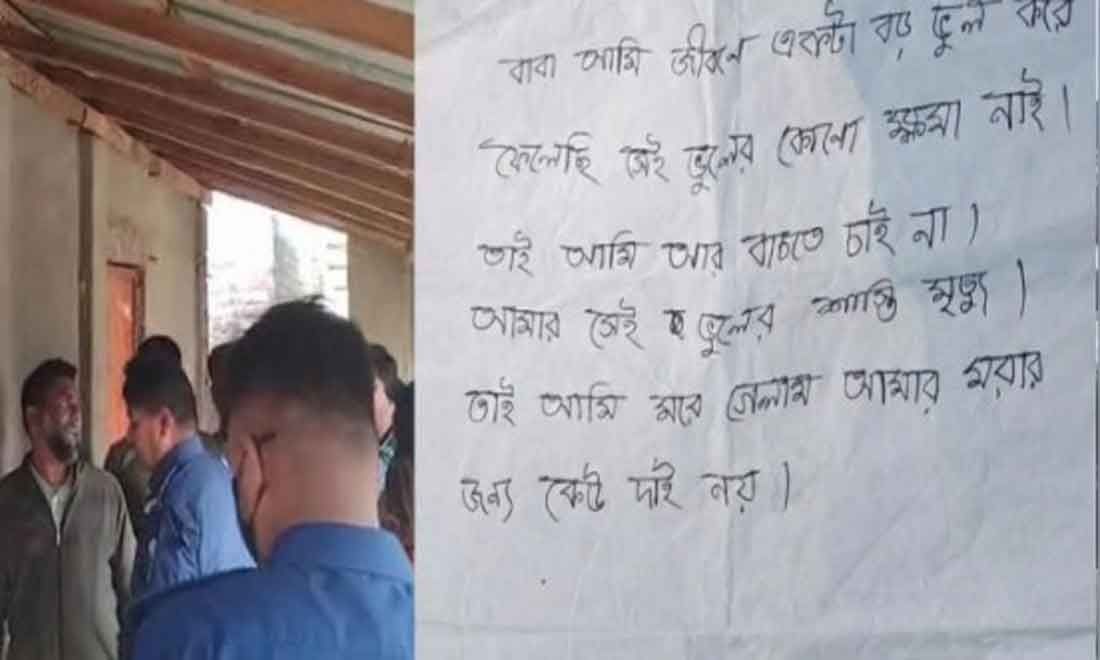 বাবা আমি জীবনে একটা বড় ভুল করে
ফেলেছি সেই ভুলের কোনো ক্ষমা নাই।
তাই আমি আর বাচতে চাই না।
আমার সেই ভুলের শাস্তি মৃত্যু।
তাই আমি মরে গেলাম আমার মরার
জন্য কেউ দাই নয়।